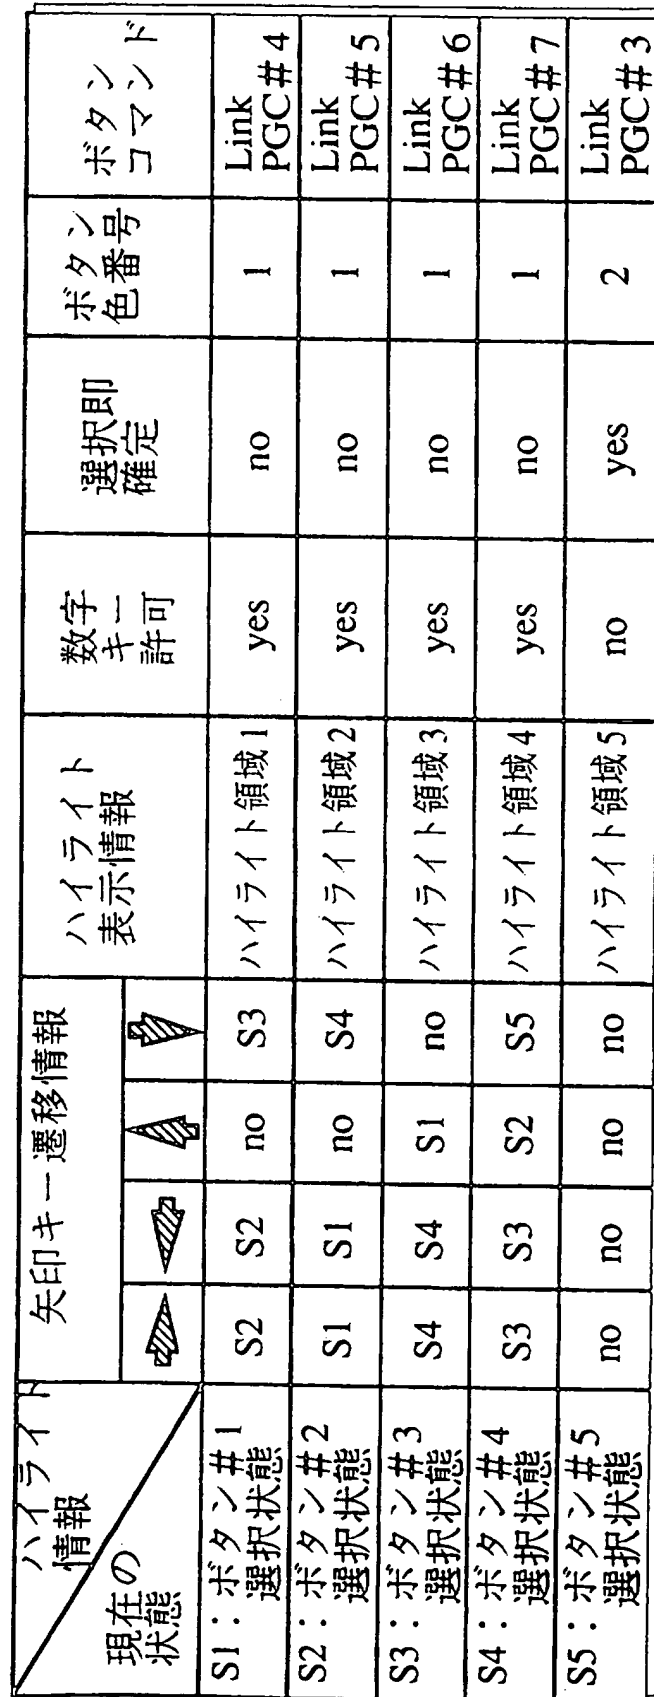 ハイライト
情報
現在の
状態
矢印キー遷移情報
ハイライト
表示情報
数字
キー
許可
選択即
確定
ボタン
色番号
ボタン
コマンド
S1：ボタン＃1
選択状態
S2
S2
no
S3
ハイライト領域1
yes
no
1
Link
PGC＃4
S2：ボタン＃2
選択状態
S1
S1
no
S4
ハイライト領域2
yes
no
1
Link
PGC＃5
S3：ボタン＃3
選択状態
S4
S4
S1
no
ハイライト領域3
yes
no
1
Link
PGC＃6
S4：ボタン＃4
選択状態
S3
S3
S2
S5
ハイライト領域4
yes
no
1
Link
PGC＃7
S5：ボタン＃5
選択状態
no
no
no
no
ハイライト領域5
no
yes
2
Link
PGC＃3